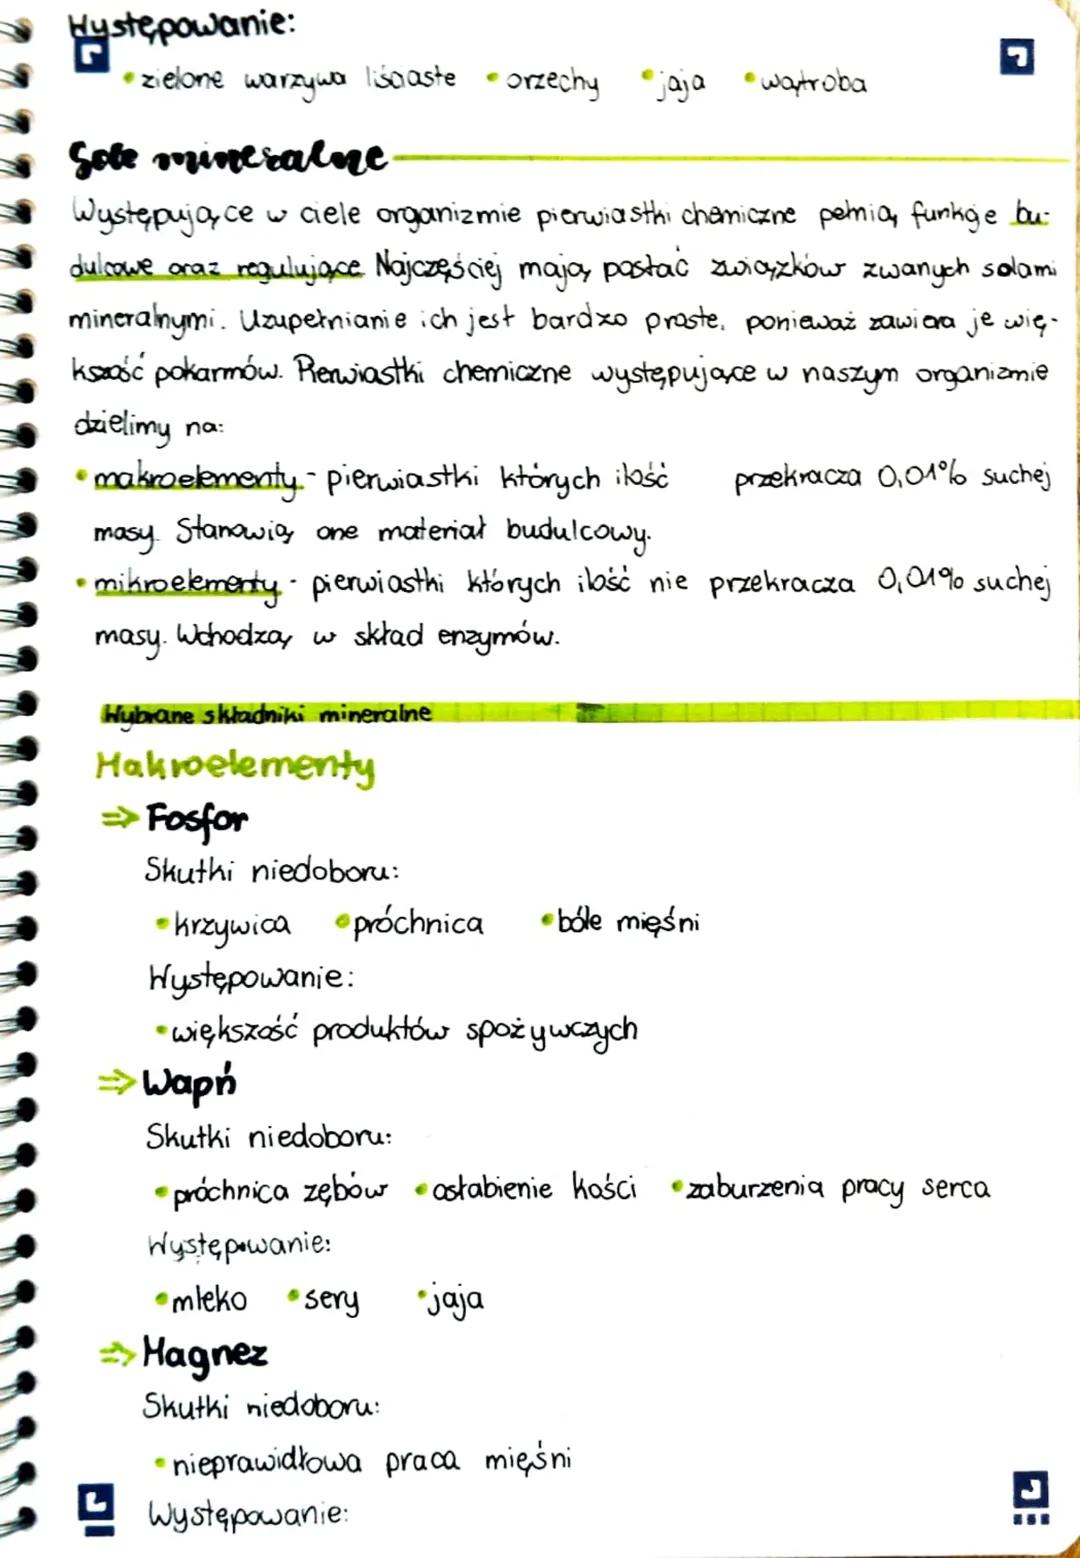 Występowanie:
• zielone warzywa liściaste • orzechy • jaja • wątroba
Sole mineralne
Występujące w ciele organizmie pierwiastki chemiczne pełnią funkcje bu-
dulcowe oraz regulujące Najczęściej mają postać związków zwanych solami
mineralnymi. Uzupełnianie ich jest bardzo proste, ponieważ zawiera je wię-
kszość pokarmów. Pierwiastki chemiczne występujące w naszym organizmie
dzielimy na:
• makroelementy - pierwiastki których ilość przekracza 0,01% suchej
masy. Stanowią one materiał budulcowy.
• mikroelementy - pierwiastki których ilość nie przekracza 0,01% suchej
masy. Wchodzą w skład enzymów.
Wybrane składniki mineralne
Makroelementy
⇒ Fosfor
Skutki niedoboru:
• krzywica • próchnica • bóle mięśni
Występowanie:
• większość produktów spożywczych
⇒ Wapń
Skutki niedoboru:
• próchnica zębów • osłabienie kości • zaburzenia pracy serca
Występowanie:
• mleko • sery • jaja
⇒ Magnez
Skutki niedoboru:
• nieprawidłowa praca mięśni
Występowanie: